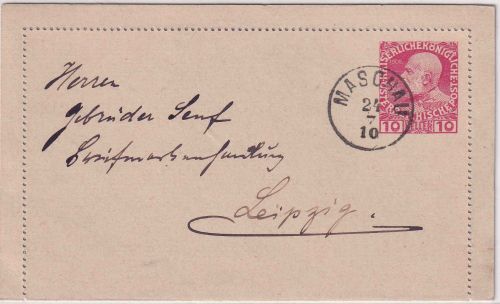 Herren
Gebrüder Senf
Briefmarkenhandlung
Leipzig.
MASCHAU
24
7
10
KAISERLICHE KÖNIGLICHE
10 HELLER 10